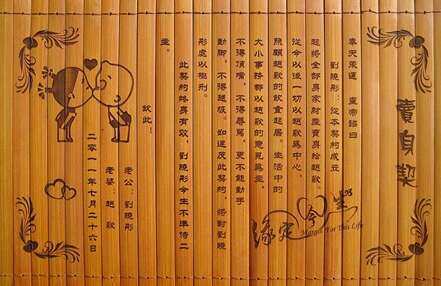 賣身契
奉天承運　皇帝詔曰
劉曉彤：從本契約成立
起將全部身家財產賣身給趙歡，
從今以後一切以趙歡為中心，
照顧趙歡的飲食起居。生活中的
大小事務都以趙歡的意見為主，
不得頂嘴，不得辱罵，更不能動手
動腳，不得越級。如違反此契約，將對劉曉
彤處以極刑。
此契約終身有效，劉曉彤今生不準侍二
主。
欽此！
老公：劉曉彤
老婆：趙歡
二〇一一年七月二十六日
緣定今生
For This Life